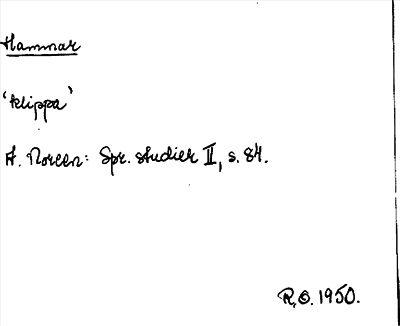 Hammar
'klippa'
A. Noreen: Spr. studier II, s. 84.
R.O. 1950.